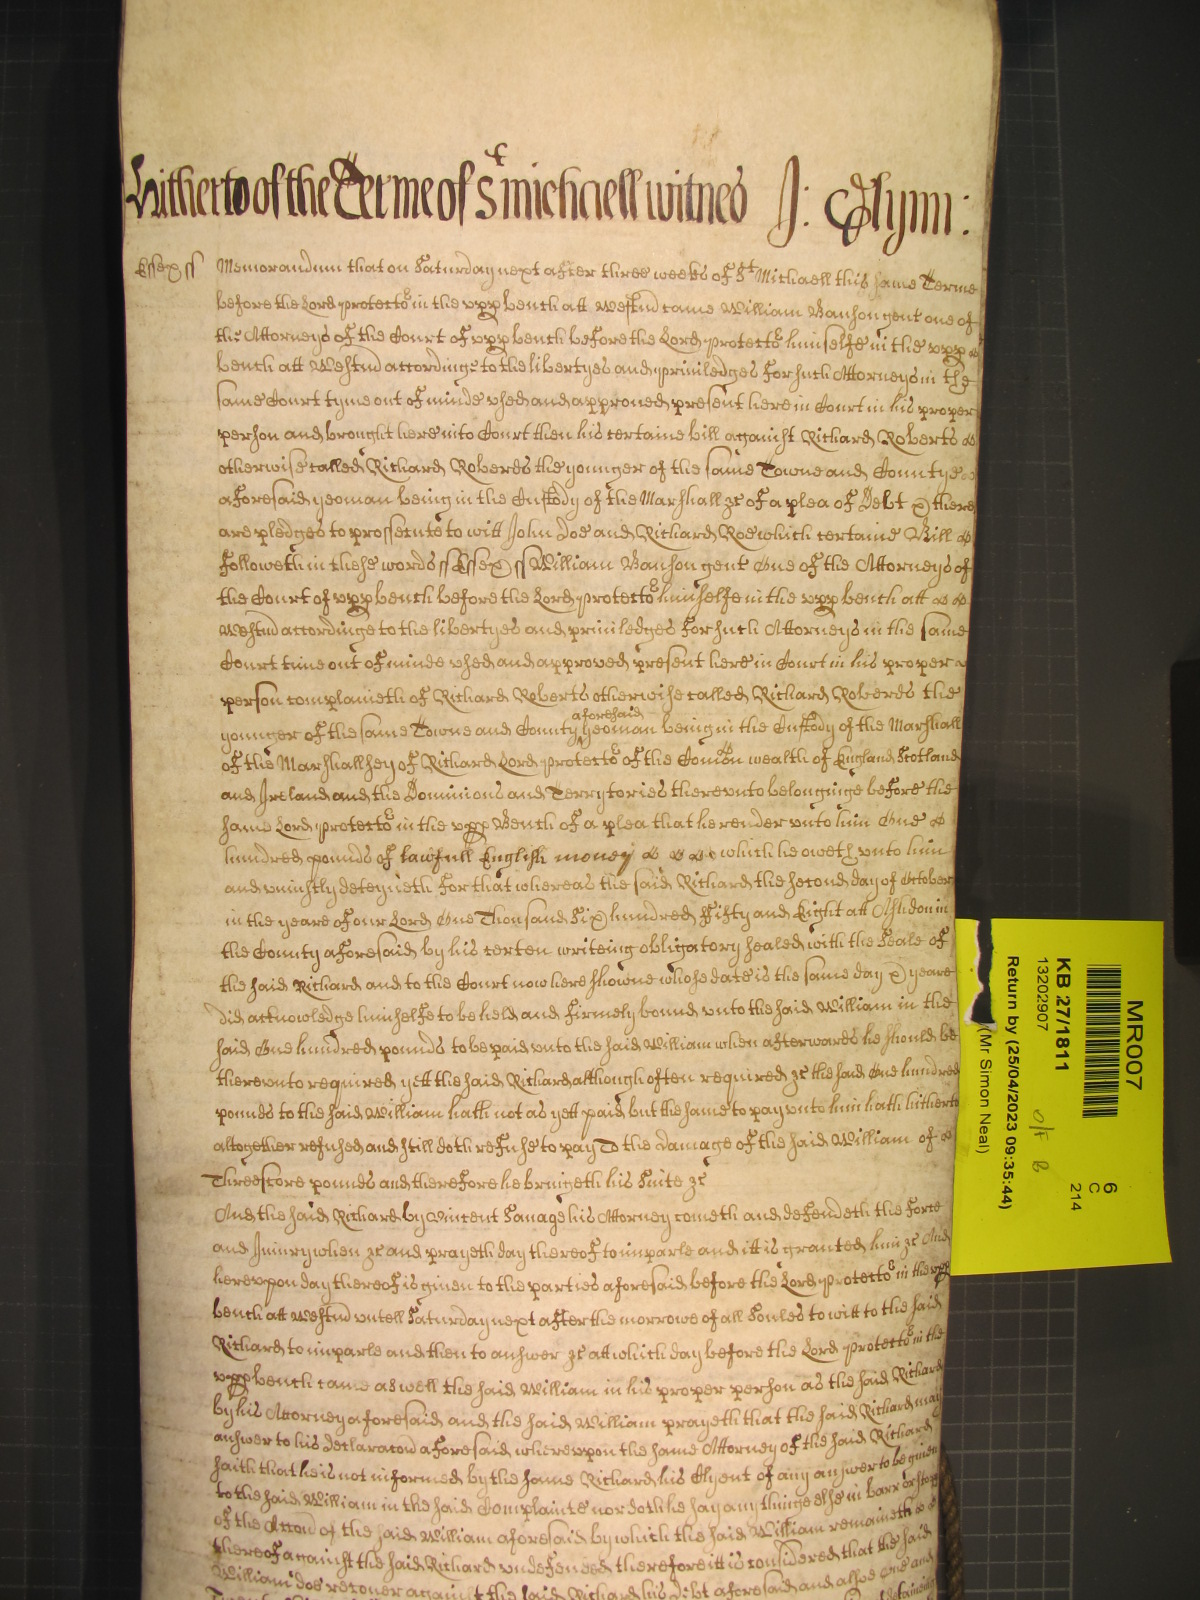 Hitherto of the Terme of St michaell witnes J: Glynn:
Essex ss Memorandum that on Saturday next after three weeks of St Michaell this same Terme
before the Lord protector in the upp bench att Westmd came William Banson gent one of
the Attorneys of the Court of upp bench before the Lord protector himselfe in the upp
bench att Westmd accordinge to the libertyes and priviledges for such Attorneys in the
same Court tyme out of minde vsed and approued present here in Court in his proper
person and brought here into Court then his certaine bill against Richard Roberts
otherwise called Richard Roberds the younger of the same Towne and Countye
aforesaid yeoman being in the Custody of the Marshall &c of a plea of Debt & there
are pledges to prossecute to witt John Doe and Richard Roe which certaine Bill
followeth in these words ss Essex ss William Banson gent One of the Attorneys of
the Court of vpp bench before the Lord protector himselfe in the vpp bench att
Westmd accordinge to the libertyes and priuiledges for such Attorneys in the same
Court time out of minde vsed and approved present here in Court in his proper
person complaineth of Richard Roberts otherwise called Richard Roberds the
younger of the same Towne and County aforesaid yeoman being in the Custody of the Marshall
of the Marshallsey of Richard Lord protector of the Comon wealth of England Scotland
and Ireland and the Dominions and Terrytories therevnto belonginge before the
same Lord protector in the vpp Bench of a plea that he render vnto him One
hundred pounds of lawfull English money which he oweth vnto him
and vniustly deteyneth for that whereas the said Richard the second day of October
in the yeare of our Lord One Thousand Six hundred ffifty and Eight att Ashdon in
the County aforesaid by his certen writeing obligatory sealed with the Seale of
the said Richard and to the Court now here showne whose date is the same day & yeare
did acknowledge himselfe to be held and firmely bound vnto the said William in the
said One hundred pounds to be paid vnto the said William when afterwards he should be
therevnto required yett the said Richard although often required &c the said One hundred
pounds to the said William hath not as yett paid but the same to pay vnto him hath hitherto
altogether refused and still doth refuse to pay To the damage of the said William of
Threescore pounds and therefore he bringeth his Suite &c
And the said Richard by Vincent Sanage his Attorney cometh and defendeth the force
and Iniury when &c and prayeth day thereof to imparle and itt is granted him &c And
herevpon day thereof is given to the parties aforesaid before the Lord protector in the vpp
bench att Westmd vntell Saturday next after the morrowe of all Soules to witt to the said
Richard to imparle and then to answer &c att which day before the Lord protector in the
vpp bench came as well the said William in his proper person as the said Richard
by his Attorney aforesaid and the said William prayeth that the said Richard may
answer to his declaracon aforesaid wherevpon the same Attorney of the said Richard
saith that he is not informed by the same Richard his Clyent of any answer to be given
to the said William in the said Complainte nor doth he say any thinge else in barr or stopp
of the Accon of the said William aforesaid by which the said William remaineth
thereof against the said Richard vndefended therefore itt is considered that the said
William doe recouer against the said Richard his Debt aforesaid and alsoe One and
MR007
6
C
214
KB 27/1811
13202907
o/f B
Return by (25/04/2023 09:35:44)
(Mr Simon Neal)